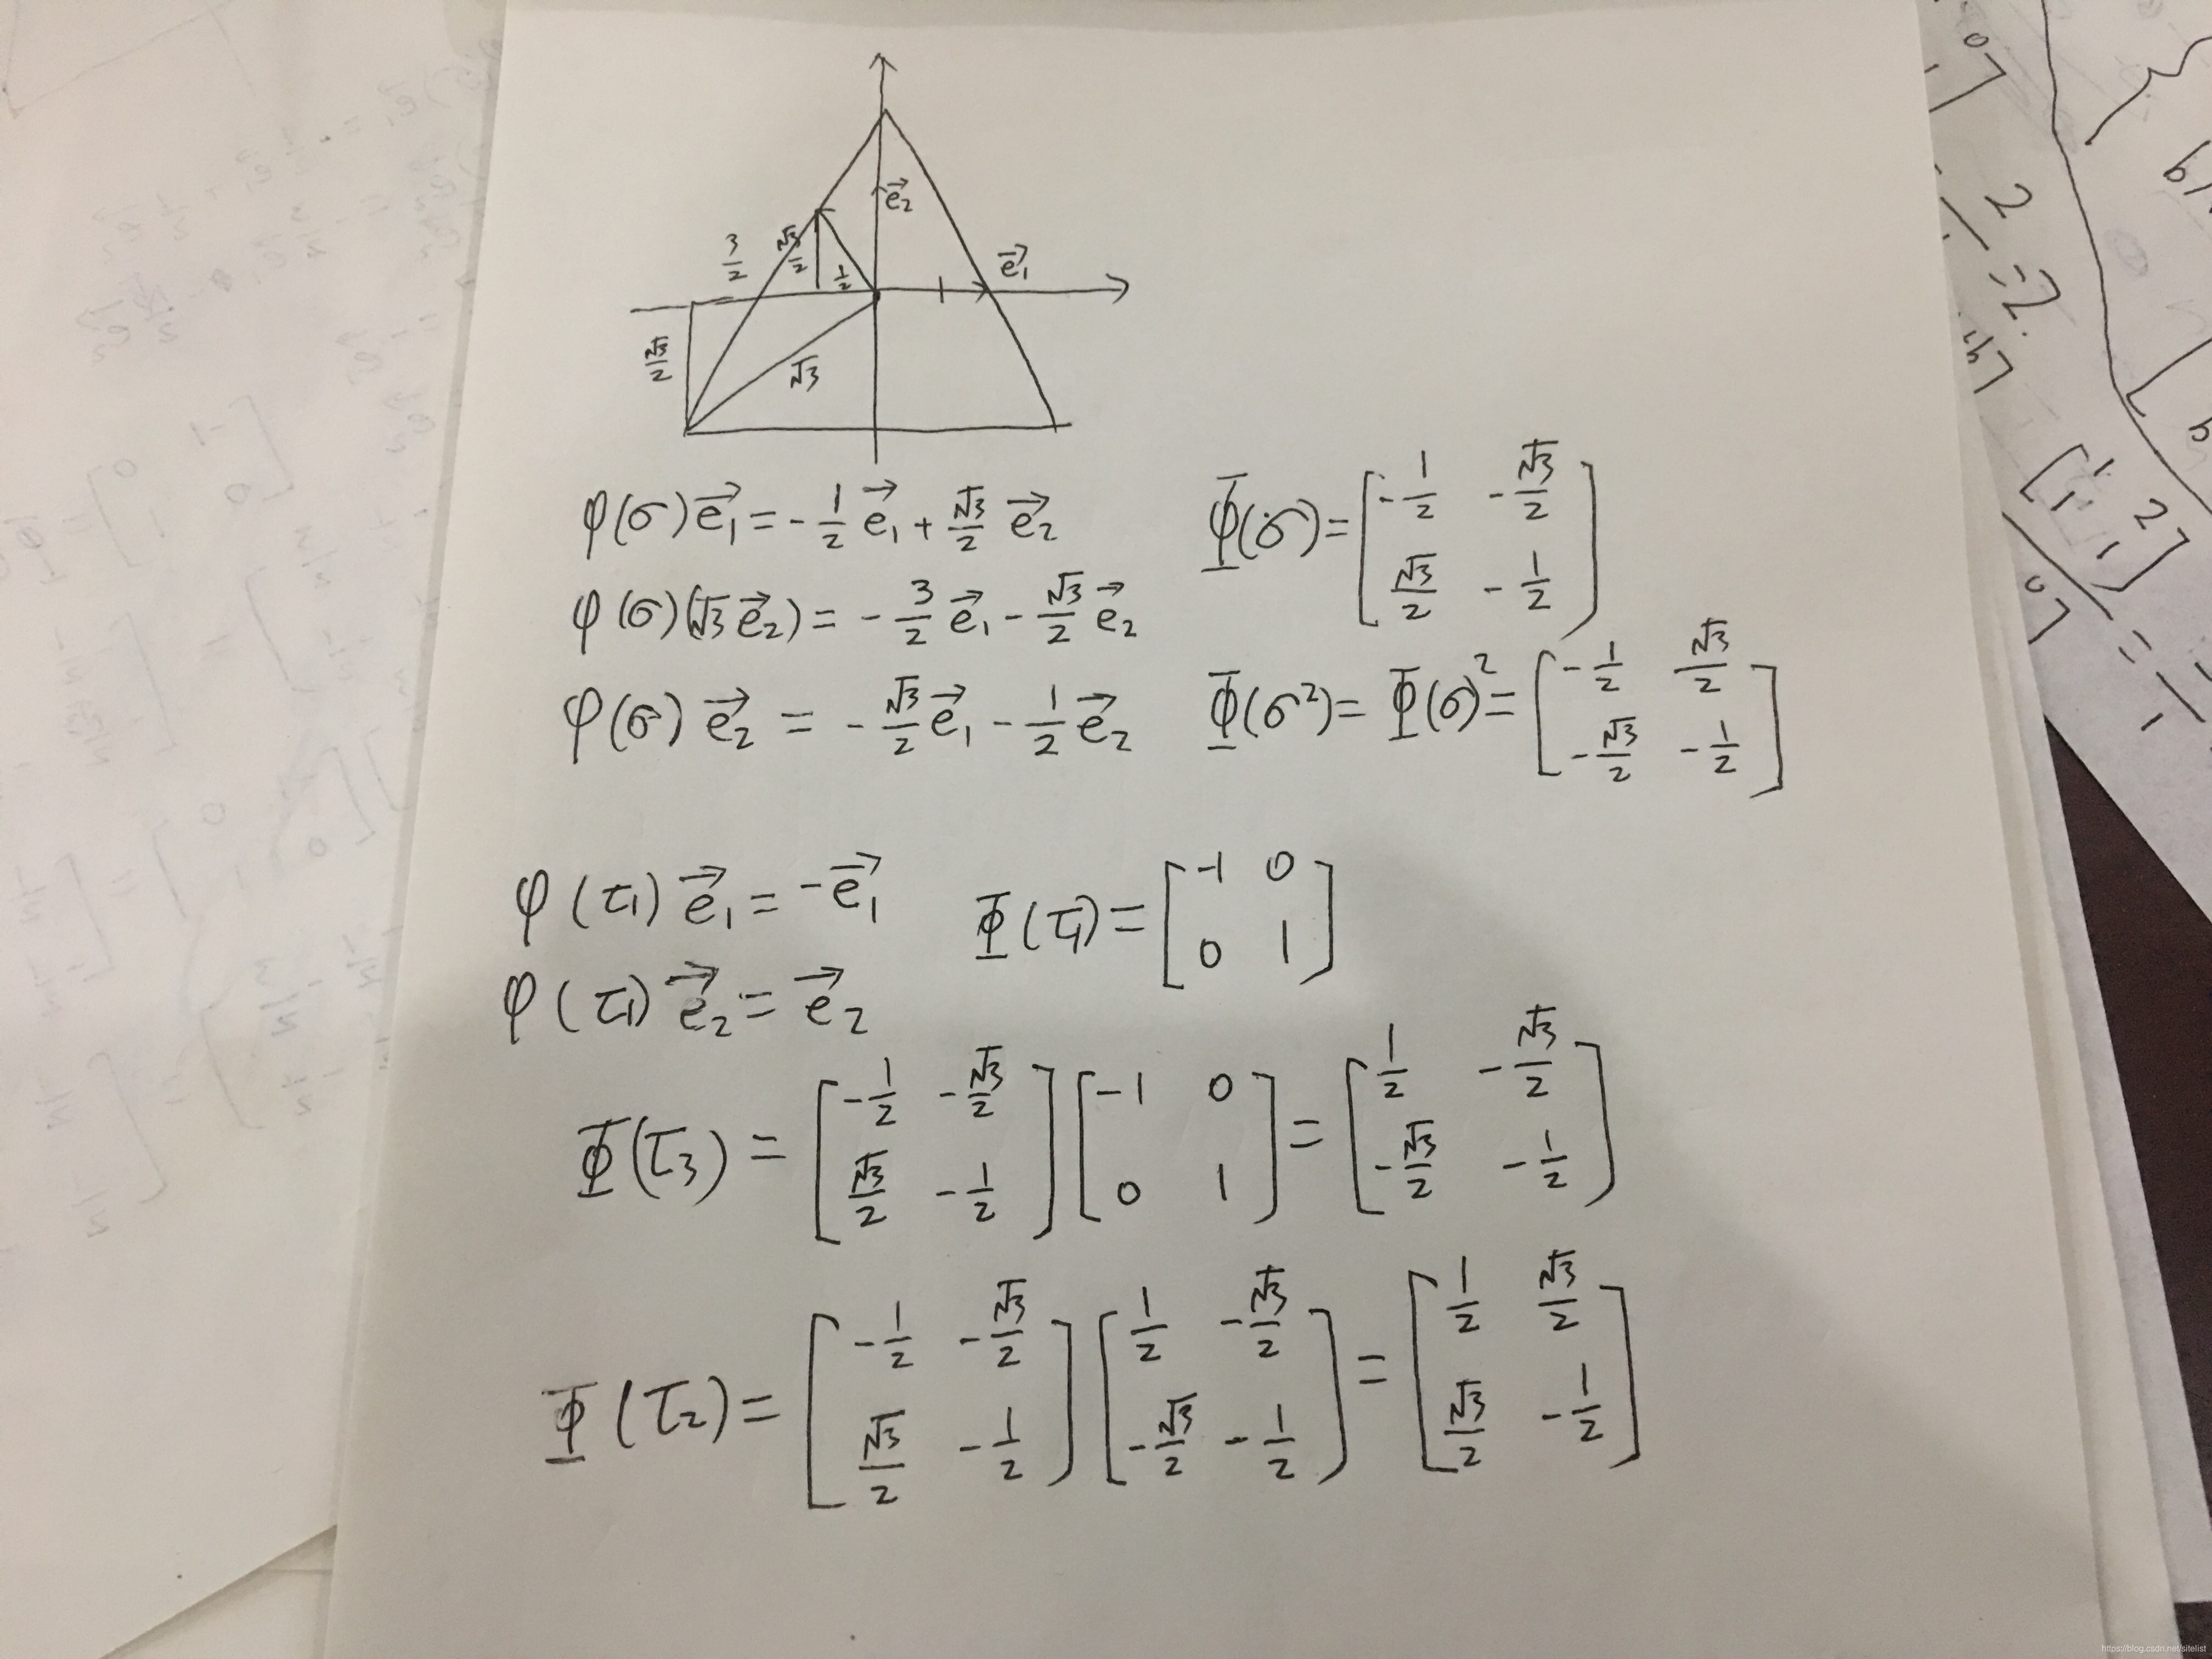 e⃗₂
3/2 √3/2 1/2 e⃗₁
√3/2 √3
φ(σ)e⃗₁ = -1/2 e⃗₁ + √3/2 e⃗₂
Φ(σ) = [-1/2 -√3/2; √3/2 -1/2]
φ(σ)(√3 e⃗₂) = -3/2 e⃗₁ - √3/2 e⃗₂
φ(σ) e⃗₂ = -√3/2 e⃗₁ - 1/2 e⃗₂
Φ(σ²) = Φ(σ)² = [-1/2 √3/2; -√3/2 -1/2]
φ(τ₁) e⃗₁ = -e⃗₁
Φ(τ₁) = [-1 0; 0 1]
φ(τ₁) e⃗₂ = e⃗₂
Φ(τ₃) = [-1/2 -√3/2; √3/2 -1/2] [-1 0; 0 1] = [1/2 -√3/2; -√3/2 -1/2]
Φ(τ₂) = [-1/2 -√3/2; √3/2 -1/2] [1/2 -√3/2; -√3/2 -1/2] = [1/2 √3/2; √3/2 -1/2]
https://blog.csdn.net/sitelist